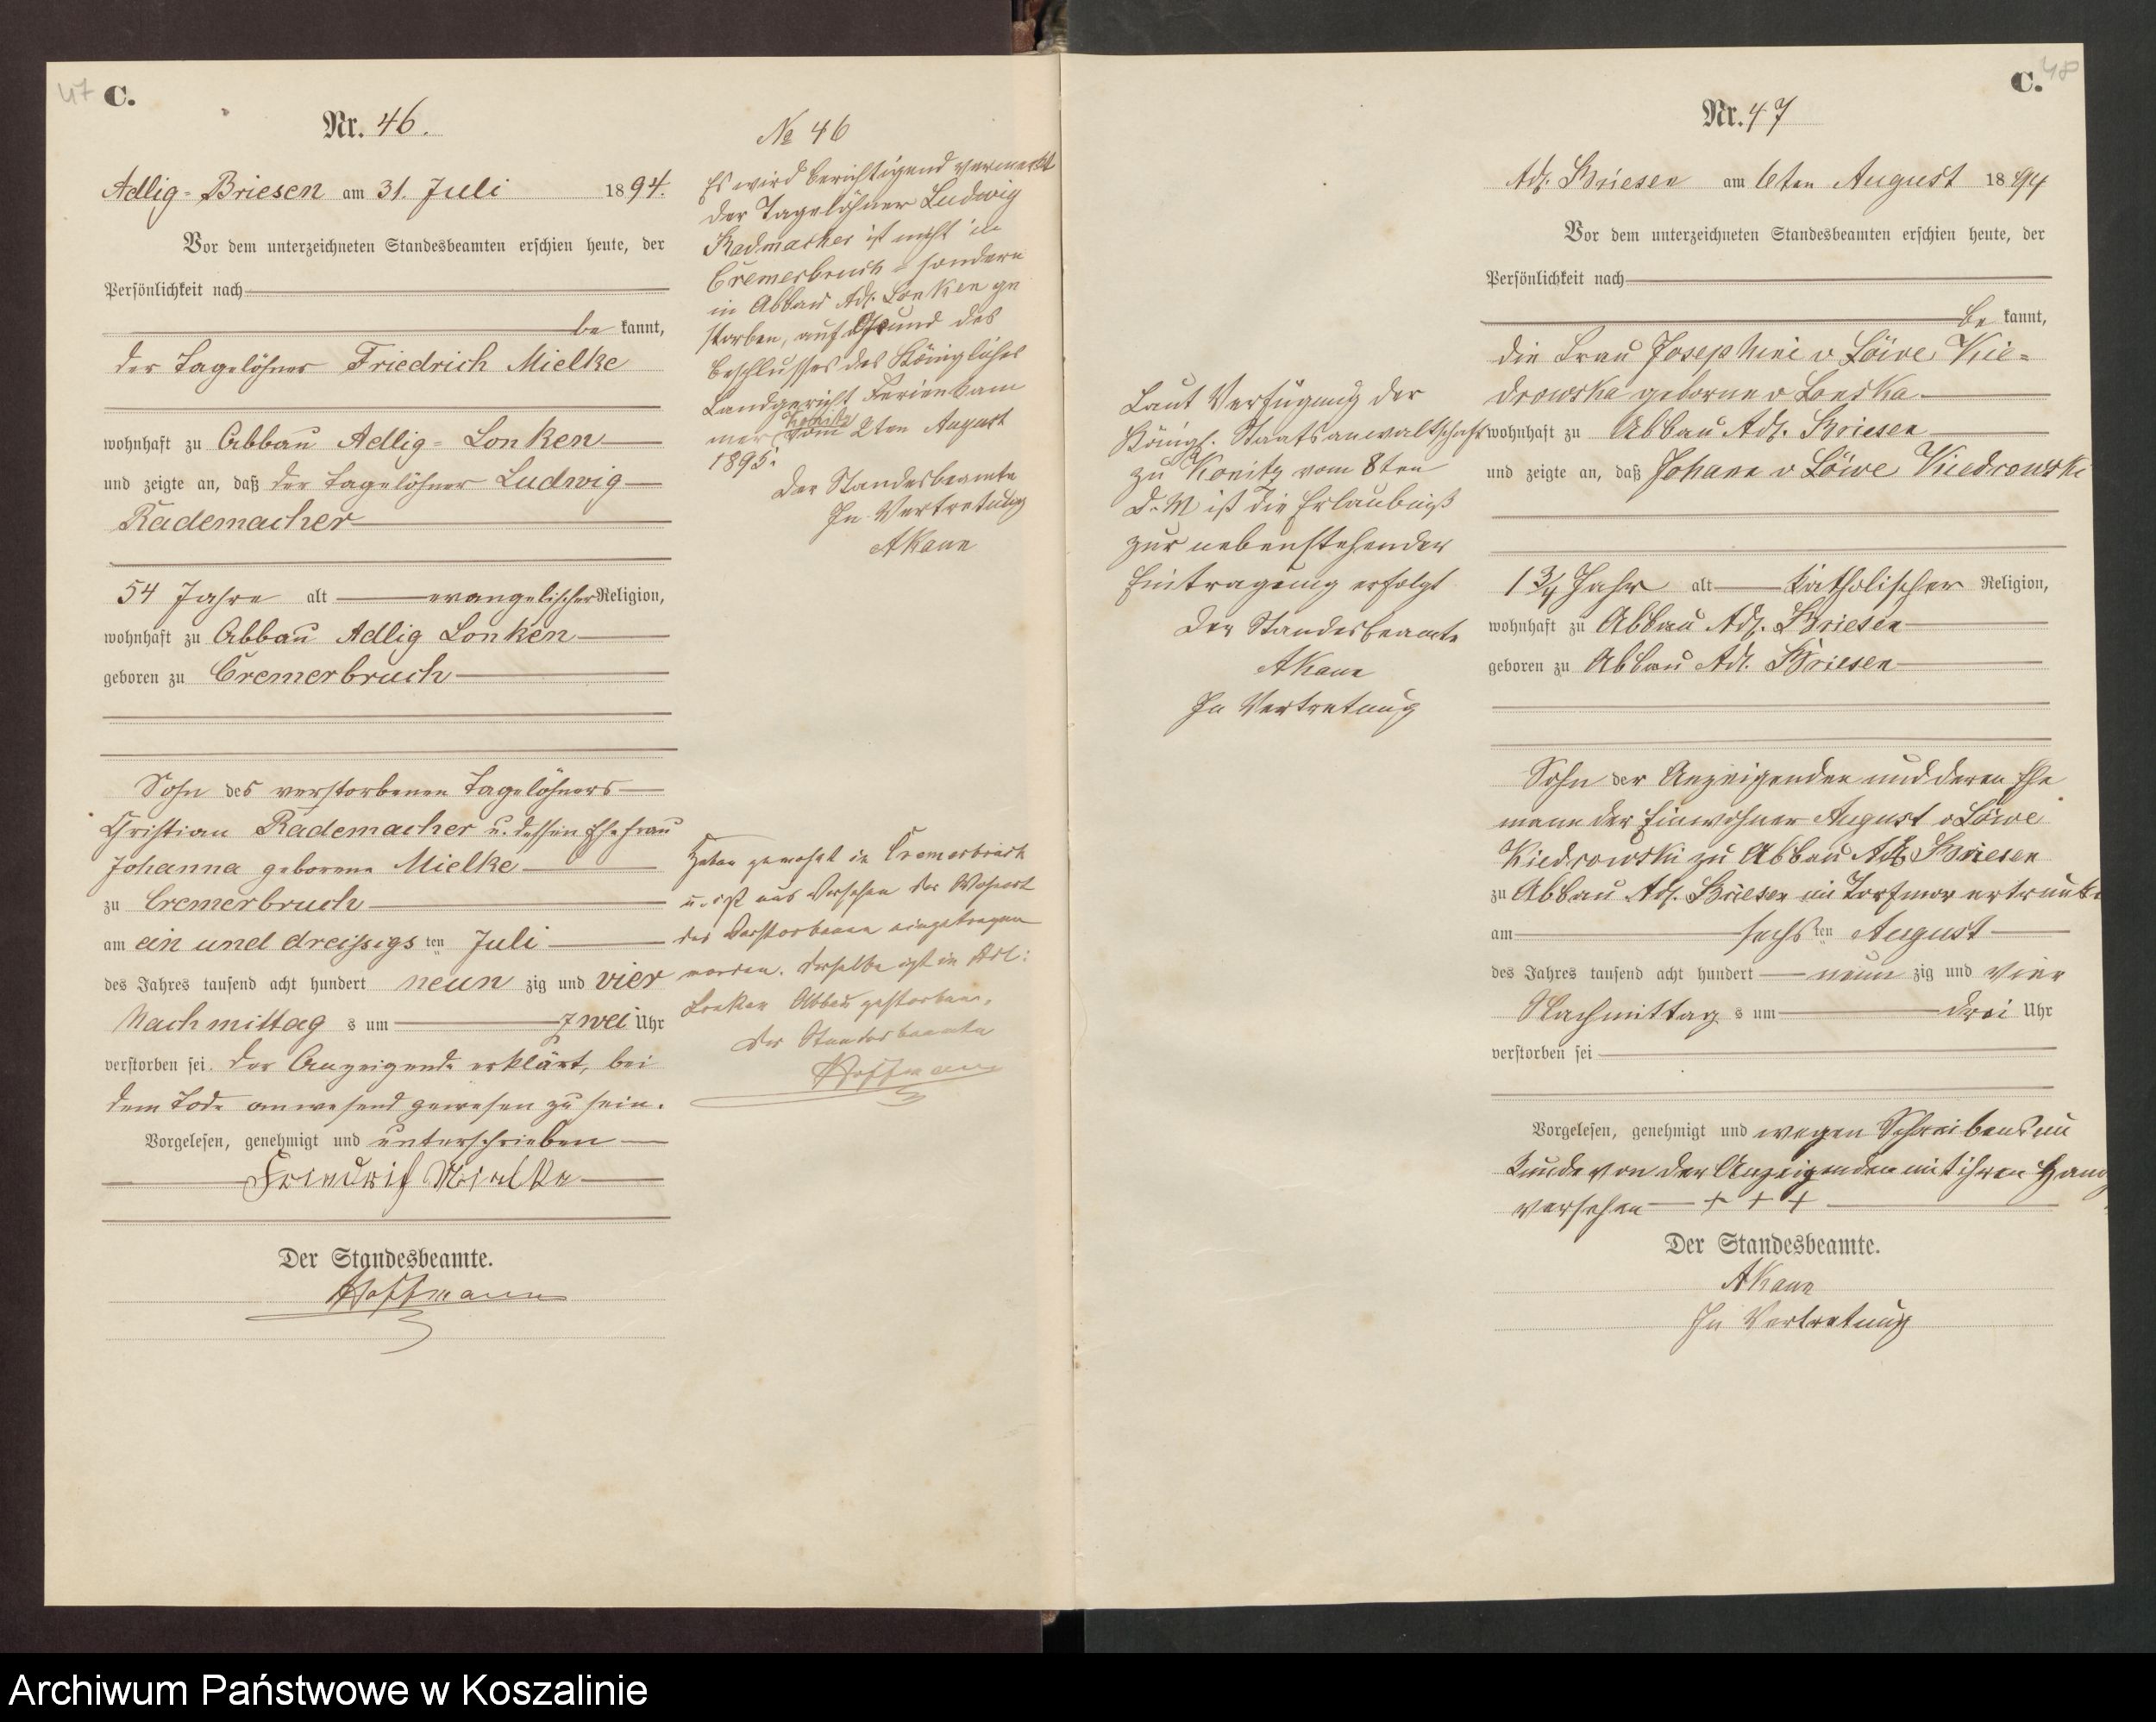 47 C.
Nr. 46.
Adlig-Briesen am 31. Juli 1894.
Vor dem unterzeichneten Standesbeamten erschien heute, der
Persönlichkeit nach
be kannt,
der Tagelöhner Friedrich Mielke
wohnhaft zu Abbau Adlig-Lonken
und zeigte an, daß der Tagelöhner Ludwig
Rademacher
54 Jahre alt evangelischer Religion,
wohnhaft zu Abbau Adlig Lonken
geboren zu Cremerbruch
Sohn des verstorbenen Tagelöhners
Christian Rademacher u. dessen Ehefrau
Johanna geborene Mielke
zu Cremerbruch
am ein und dreißigs ten Juli
des Jahres tausend acht hundert neun zig und vier
Nachmittag s um zwei Uhr
verstorben sei. Der Anzeigende erklärt, bei
dem Tode anwesend gewesen zu sein.
Vorgelesen, genehmigt und unterschrieben
Friedrich Mielke
Der Standesbeamte.
Hoffmann
No 46
Es wird berichtigend vermerkt
der Tagelöhner Ludwig
Radmacher ist nicht in
Cremerbruch = sondern
in Abbau Adl. Lonken ge
storben, auf Grund des
Beschlusses des Königliches
Landgericht Ferienkam
mer Konitz vom 2ten August
1895.
Der Standesbeamte
In Vertretung
AKann
Haben gewohnt in Cremerbruch
u. ist aus Versehen der Wohnort
des Verstorbenen eingetragen
worden. Derselbe ist in Adl:
Lonken Abbau gestorben.
Der Standesbeamte
Hoffmann
C. 48
Nr. 47
Adl. Briesen am 6ten August 1894
Vor dem unterzeichneten Standesbeamten erschien heute, der
Persönlichkeit nach
be kannt,
die Frau Josephine v Löwe Kie=
drowska geborne v Lonska
wohnhaft zu Abbau Adl. Briesen
und zeigte an, daß Johann v Löwe Kiedrowski
1 3/4 Jahr alt katholischer Religion,
wohnhaft zu Abbau Adl. Briesen
geboren zu Abbau Adl. Briesen
Sohn der Anzeigenden und deren Ehe
mann der Einwohner August v Löwe
Kiedrowski zu Abbau Adl. Briesen
zu Abbau Adl. Briesen im Torfmor ertrunken
am sechs ten August
des Jahres tausend acht hundert neun zig und vier
Nachmittag s um drei Uhr
verstorben sei
Vorgelesen, genehmigt und wegen Schreibens un
kunde von der Anzeigenden mit ihren Hand
versehen + + +
Der Standesbeamte.
AKann
In Vertretung
Laut Verfügung der
Königl. Staatsanwaltschaft
zu Konitz vom 8ten
d. M ist die Erlaubniß
zur nebenstehender
Eintragung erfolgt
Der Standesbeamte
AKann
In Vertretung
Archiwum Państwowe w Koszalinie